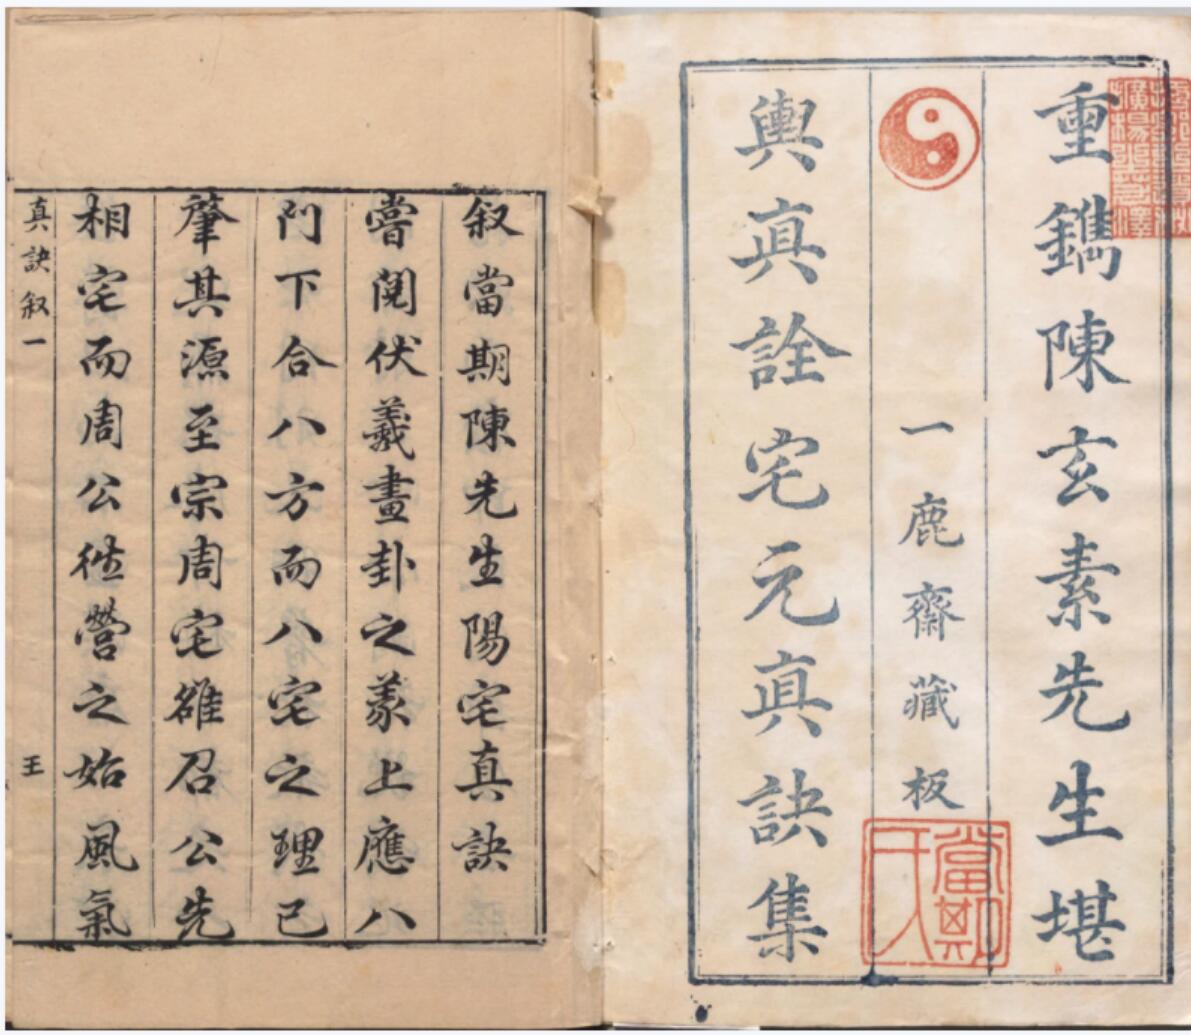 重鐫陳玄素先生堪
一鹿齋藏板
輿真詮宅元真訣集
當期氏
叙當期陳先生陽宅真訣
嘗閱伏羲畫卦之彖上應八
門下合八方而八宅之理已
肇其源至宗周宅雒召公先
相宅而周公徃營之始風氣
真訣叙一
王